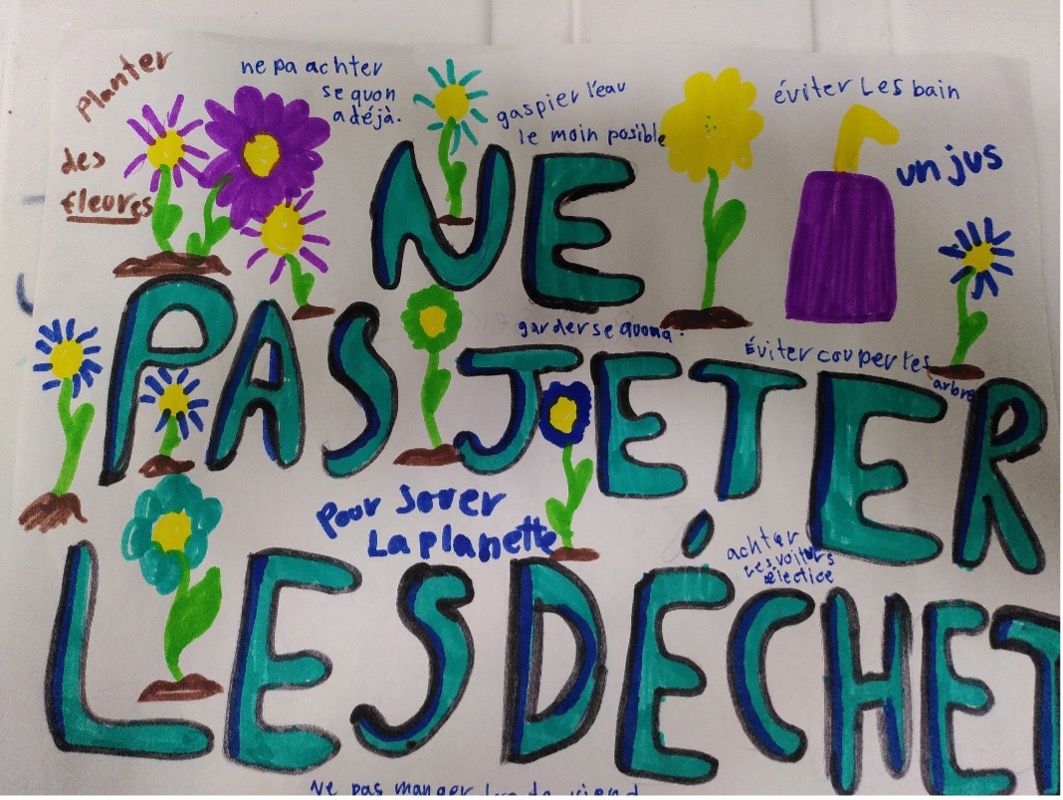 planter
des
fleures
ne pa achter
se quon
a déjà.
gaspier l'eau
le moin posible
éviter Les bain
un jus
NE
garder se quona.
Éviter couper les
arbre
PAS JETER
pour Sover
La planette
achter
Les voiturs
électice
LES DÉCHET
Ne pas manger